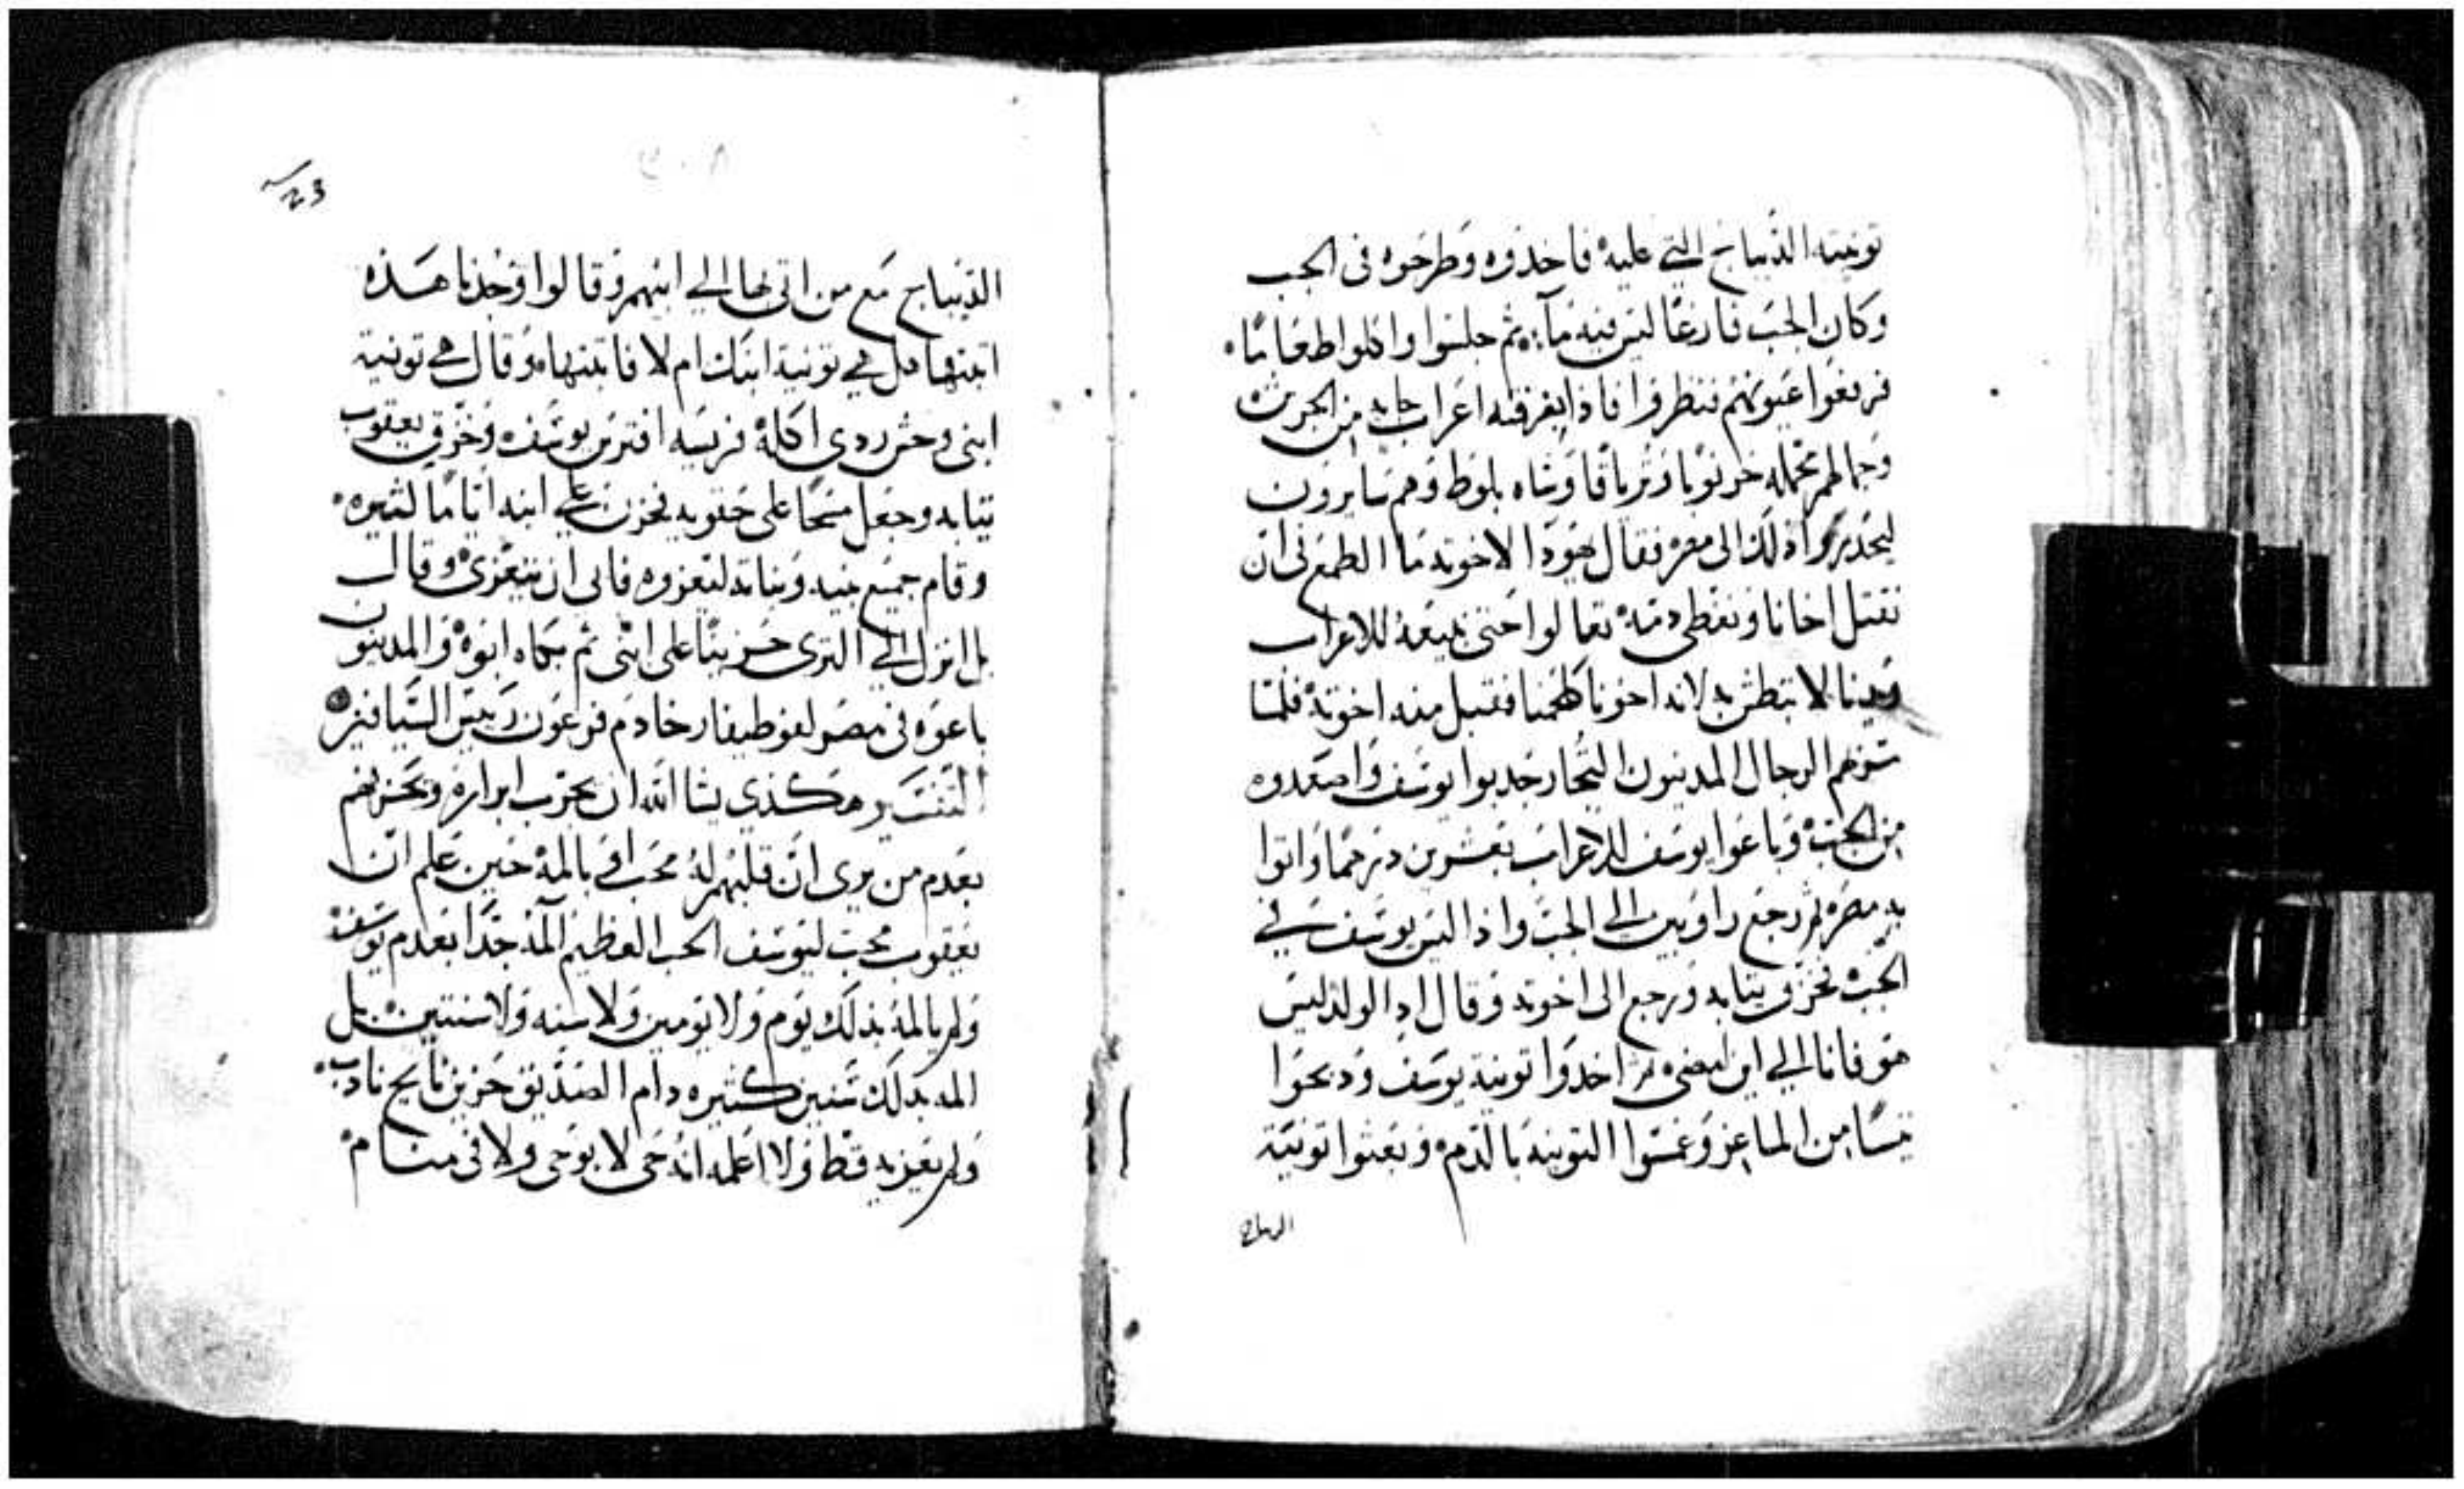 تونيته الديباج التي عليه فاخذوه وطرحوه في الجب
وكان الجب فارغا ليس فيه ماء ثم جلسوا واكلوا طعاما
فرفعوا عيونهم فنظروا فاذا بفرقه اعراب جايه من الجرش
وجمالهم تحمله خرنوبا وترياقا وشاه بلوط وهم سايرون
ليحدروا ذلك الى مصر فقال يهودا لاخوته ما الطمع في ان
نقتل اخانا ونغطي دمه تعالوا حتى نبيعه للاعراب
ويدنا لا تبطش به لانه اخونا لحمنا فقبل منه اخوته فلما
الرجال المدينون التجار جدبوا يوسف واصعدوه
من الجب وباعوا يوسف للاعراب بعشرين درهما واتوا
به مصر ثم رجع راوبين الى الجب واذا ليس يوسف في
الجب فخرق ثيابه ورجع الى اخوته وقال اذ الولد ليس
هو فانا الي اين امضي ثم اخدوا تونية يوسف ودبحوا
تيسا من الماعز وغمسوا التونيه بالدم وبعثوا تونية
الديباج
23
الديباج مع من اتى بها الي ابيهم وقالوا وجدنا هذه
اثبتها هل هي تونية ابنك ام لا فاثبتها وقال هي تونية
ابني وحش ردي اكله فريسه افترس يوسف وخرق يعقوب
ثيابه وجعل مسحا على حقويه فحزن علي ابنه اياما كثيره
وقام جميع بنيه وبناته ليعزوه فابى ان يتعزى وقال
بل انزل الي الثرى حزينا على ابني ثم بكاه ابوه والمدينون
باعوه في مصر لفوطيفار خادم فرعون رييس السيافين
التفسير هكذي يشا الله ان يجرب ابراره ويحزنهم
بعدم من يرى ان قلبهم له محب اوبالمه حين علم ان
يعقوب محب ليوسف الحب العظيم المه جدا بعدم يوسف
ولم يالمه بذلك يوم ولا يومين ولا سنه ولا سنتين بل
المه بدلك سنين كثيره دام الصديق حزين نايح نادب
ولم يعزيه قط ولا اعلمه انه حي لا بوحي ولا في منام